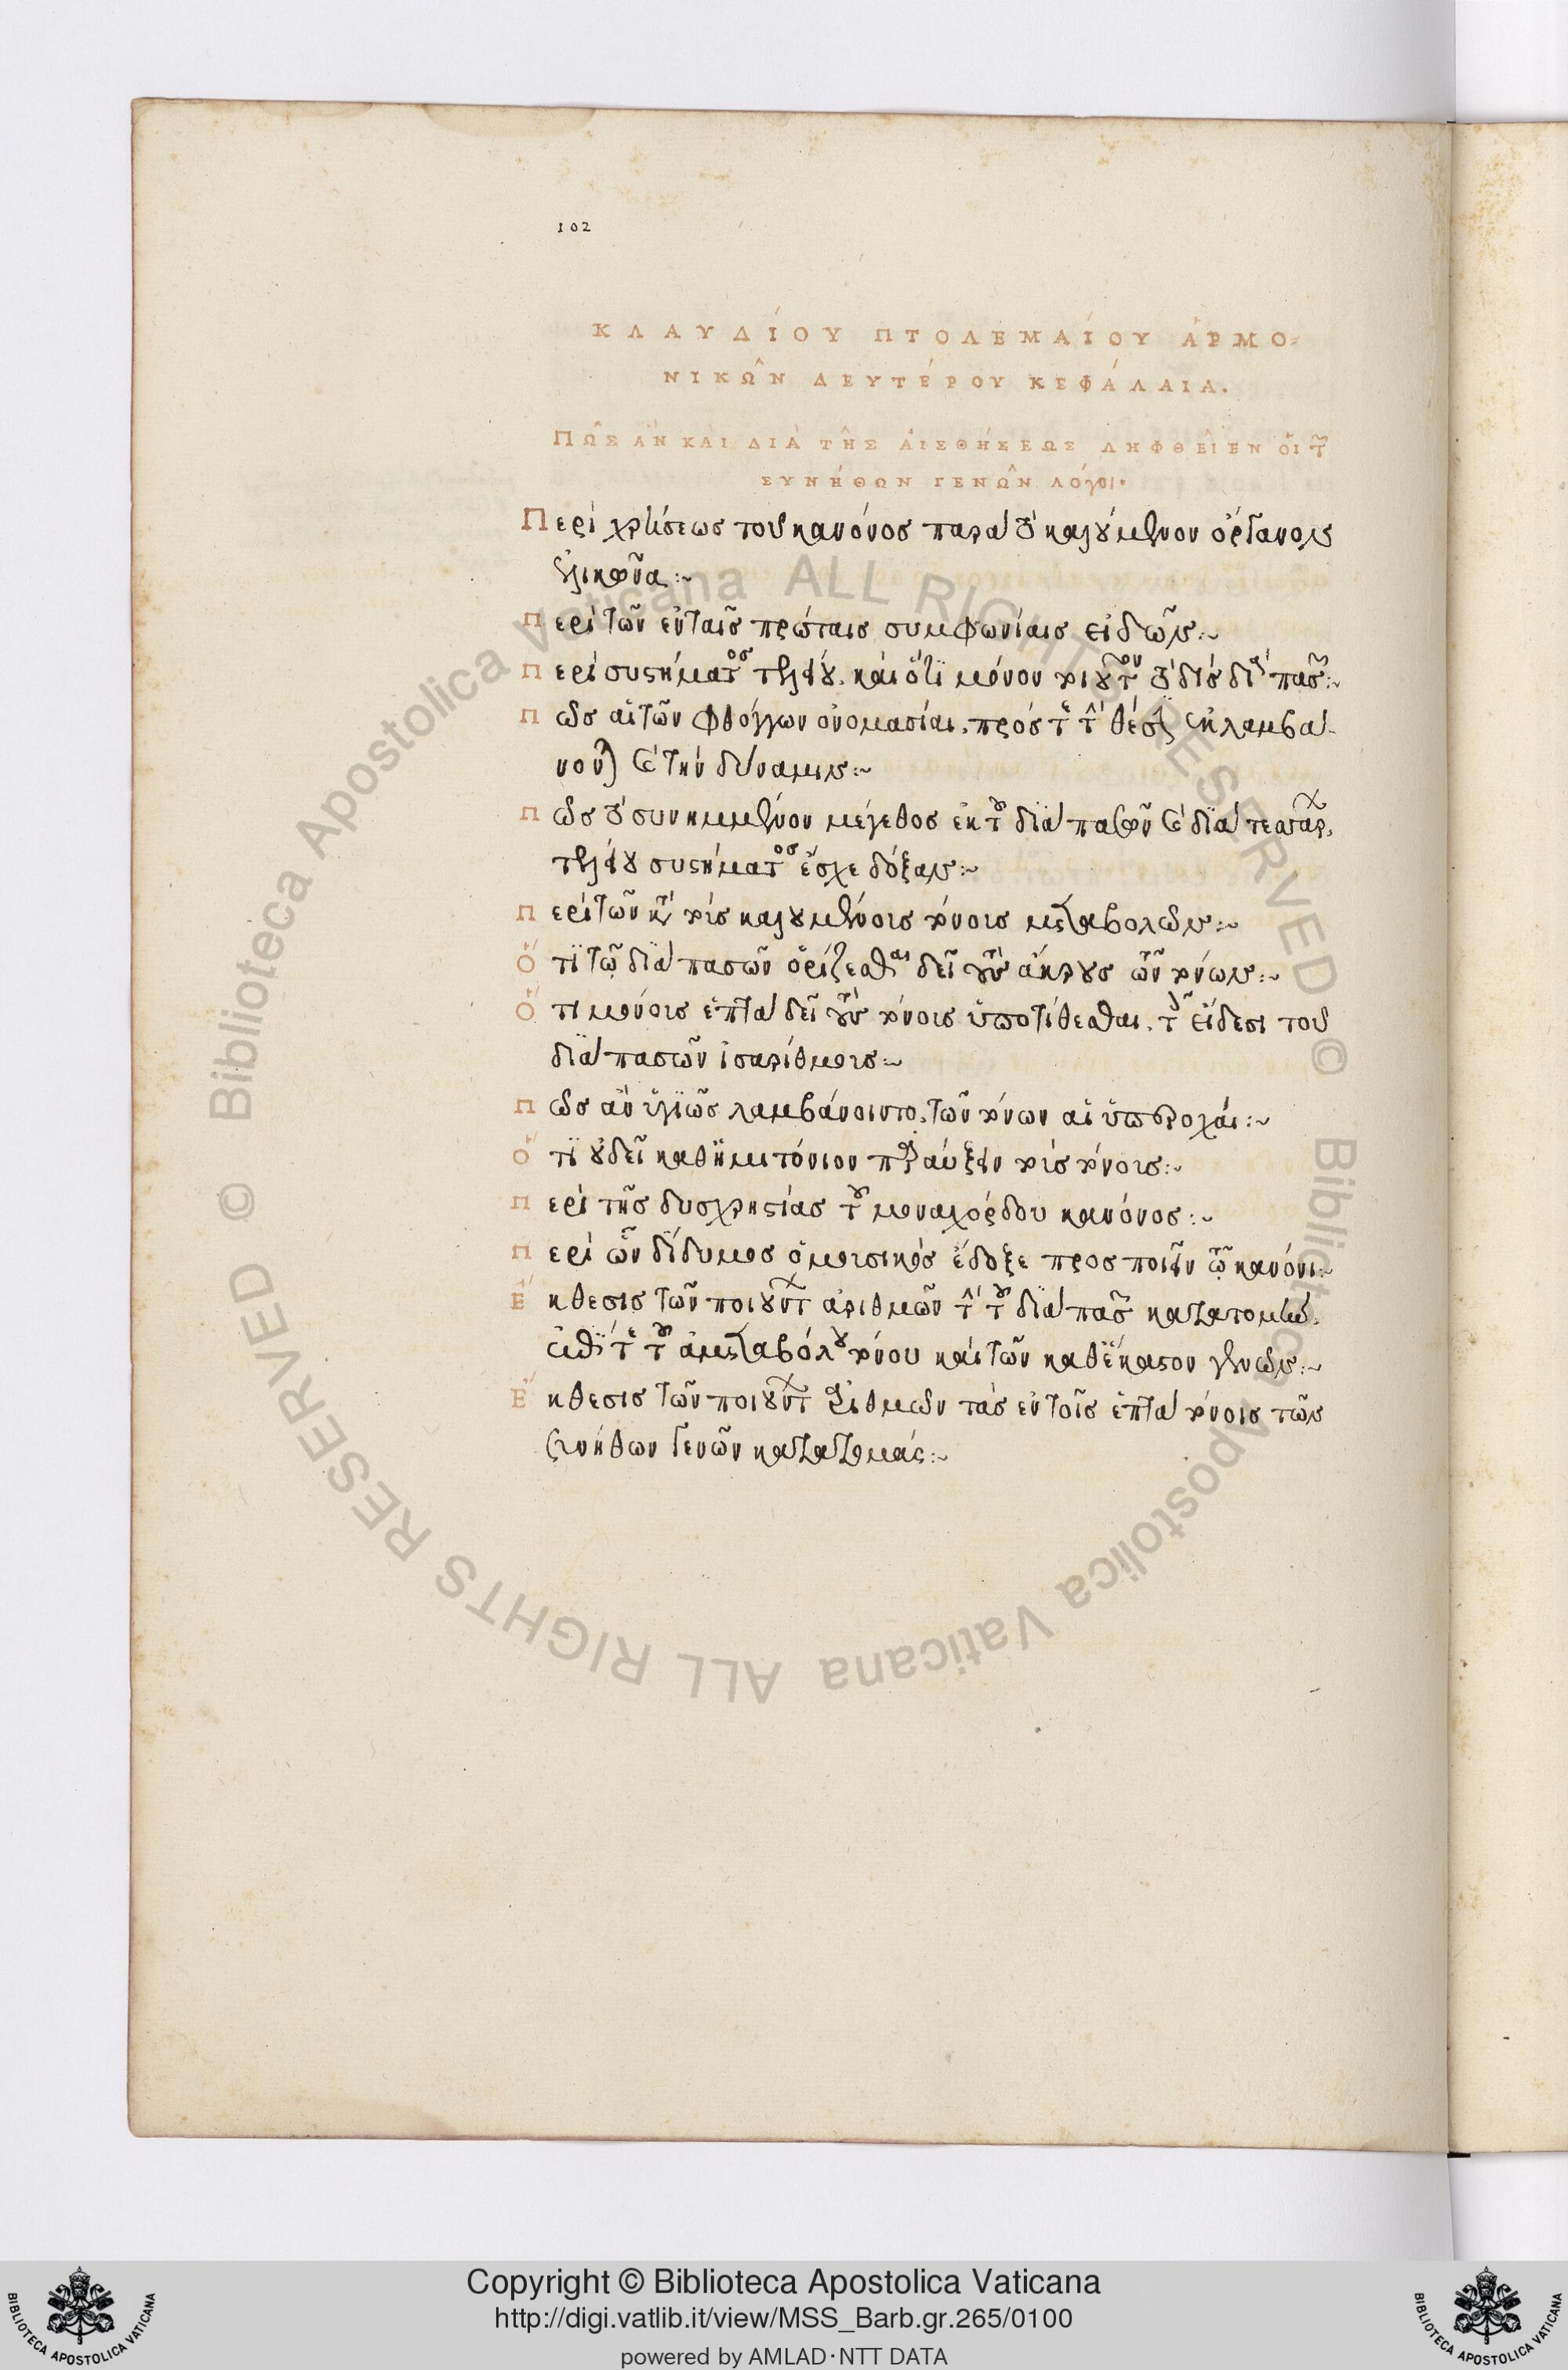 102
ΚΛΑΥΔΊΟΥ ΠΤΟΛΕΜΑΊΟΥ ἉΡΜΟ-
ΝΙΚΩ͂Ν ΔΕΥΤΈΡΟΥ ΚΕΦΆΛΑΙΑ.
ΠΩ͂Σ ἊΝ ΚΑῚ ΔΙᾺ ΤΗ͂Σ ἈΙΣΘΉΣΕΩΣ ΛΗΦΘΕΙ͂ΕΝ ὉΙ ΤῶΝ
ΣΥΝΉΘΩΝ ΓΕΝΩ͂Ν ΛΌΓΟΙ·
Περὶ χρήσεως τοῦ κανόνος παρὰ τὸ καλούμενον ὄργανον
ἑλικῶνα:~
περὶ τῶν ἐν ταῖς πρώταις συμφωνίαις εἰδῶν:~
περὶ συστήματος τελείου. καὶ ὅτι μόνον τοιοῦτον τὸ δὶς διὰ πασῶν:~
πῶς αἱ τῶν φθόγγων ὀνομασίαι, πρός τε τὴν θέσιν ἐκλαμβά-
νονται καὶ τὴν δύναμιν:~
πῶς τὸ συνημμένον μέγεθος ἐκ τοῦ διὰ πασῶν καὶ διὰ τεσσάρων,
τελείου συστήματος ἔσχε δόξαν:~
περὶ τῶν κατὰ τοὺς καλουμένους τόνους μεταβολῶν:~
Ὅτι τῷ διὰ πασῶν ὁρίζεσθαι δεῖ τοὺς ἄκρους τῶν τόνων:~
Ὅτι μόνους ἑπτὰ δεῖ τοὺς τόνους ὑποτίθεσθαι, τοῖς εἴδεσι τοῦ
διὰ πασῶν ἰσαρίθμους:~
πῶς ἂν ὑγιῶς λαμβάνοιντο, τῶν τόνων αἱ ὑπεροχαί:~
Ὅτι οὐ δεῖ καθ' ἡμιτόνιον παραύξειν τοὺς τόνους:~
περὶ τῆς δυσχρηστίας τοῦ μοναχόρδου κανόνος:~
περὶ ὧν δίδυμος ὁ μουσικὸς ἔδοξε προσποιεῖν τῷ κανόνι:~
Ἔκθεσις τῶν ποιούντων ἀριθμῶν τὴν τοῦ διὰ πασῶν κατατομὴν,
ἐπί τε τοῦ ἀμεταβόλου τόνου καὶ τῶν καθ' ἕκαστον γενῶν:~
Ἔκθεσις τῶν ποιούντων ἀριθμῶν τὰς ἐν τοῖς ἑπτὰ τόνοις τῶν
συνήθων γενῶν κατατομάς:~
© Biblioteca Apostolica Vaticana ALL RIGHTS RESERVED
© Biblioteca Apostolica Vaticana ALL RIGHTS RESERVED
Copyright © Biblioteca Apostolica Vaticana
http://digi.vatlib.it/view/MSS_Barb.gr.265/0100
powered by AMLAD·NTT DATA
BIBLIOTECA APOSTOLICA VATICANA
BIBLIOTECA APOSTOLICA VATICANA